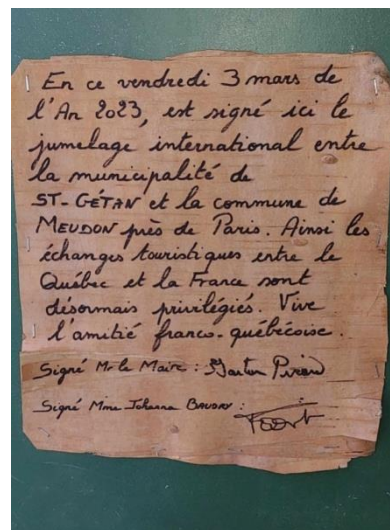 En ce vendredi 3 mars de
l'An 2023, est signé ici le
jumelage international entre
la municipalité de
ST-GÉTAN et la commune de
MEUDON près de Paris. Ainsi les
échanges touristiques entre le
Québec et la France sont
désormais privilégiés. Vive
l'amitié franco-québécoise.
Signé Mr le Maire : Gaston
Signé Mme Johanne BAUDRY :